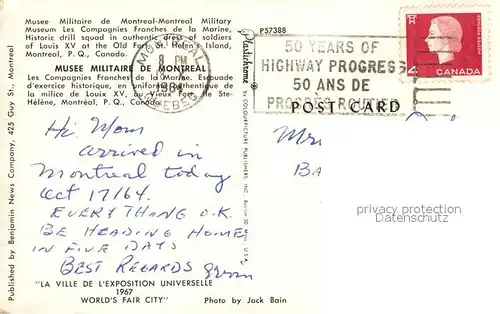 Musée Militaire de Montreal-Montreal Military
Museum Les Compagnies Franches de la Marine,
Historic drill squad in authentic dress of soldiers
of Louis XV at the Old Fort, St. Helen's Island,
Montreal, P. Q., Canada.
MUSEE MILITAIRE DE MONTREAL
Les Compagnies Franches de la Marine. Escouade
d'exercice historique, en uniforme authentique
de la milice de Louix XV, au Vieux Fort de Ste-
Hélène, Montréal, P. Q., Canada.
MONTREAL
8 PM
QUEBEC
P57388
50 YEARS OF
HIGHWAY PROGRESS
50 ANS DE
PROGRES ROUTIER
POST CARD
4
CANADA
Plastichrome
by COLOURPICTURE PUBLISHERS, INC. Boston 30 Mass., U.S.A.
Published by Benjamin News Company, 425 Guy St., Montreal
Hi Mom
arrived in
Montreal today
Oct 17/64.
EVERYTHANG O.K.
BE HEADING HOME
IN FIVE DAYS
BEST REGARDS
Mrs.
BA
privacy protection
DatenSchutz
"LA VILLE DE L'EXPOSITION UNIVERSELLE
1967
WORLD'S FAIR CITY"
Photo by Jack Bain